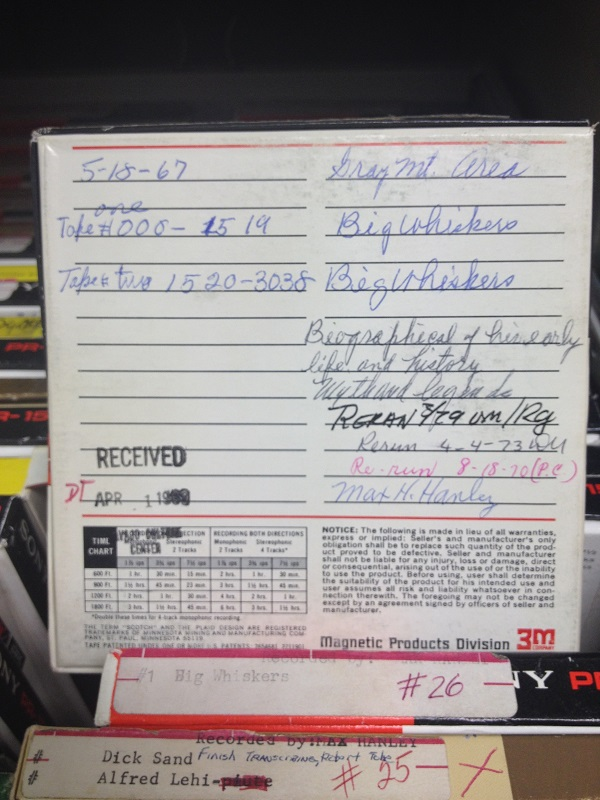 5-18-67 Gray Mt. Area
one
Tape # 000 - 1519 Big Whiskers
Tape # two 1520-3038 Big Whiskers
Biographical of his early
life and history
Myth and legends
RERAN 3/79 um/Rg
Rerun 4-4-73
Re-run 8-18-70 (P.C.)
Max H. Hanley
RECEIVED
DT APR 1
TIME CHART
RECORDING BOTH DIRECTIONS
Monophonic 2 Tracks
Stereophonic 4 Tracks*
600 FT. 1 hr. 30 min. 15 min. 2 hrs. 1 hr. 30 min.
900 FT. 1½ hrs. 45 min. 23 min. 3 hrs. 1½ hrs. 45 min.
1200 FT. 2 hrs. 1 hr. 30 min. 4 hrs. 2 hrs. 1 hr.
1800 FT. 3 hrs. 1½ hrs. 45 min. 6 hrs. 3 hrs. 1½ hrs.
*Double these times for 4-track monophonic recording.
THE TERM "SCOTCH" AND THE PLAID DESIGN ARE REGISTERED
TRADEMARKS OF MINNESOTA MINING AND MANUFACTURING COM-
PANY, ST. PAUL, MINNESOTA 55119.
TAPE PATENTED UNDER ONE OR MORE U.S. PATENTS.
NOTICE: The following is made in lieu of all warranties,
express or implied: Seller's and manufacturer's only
obligation shall be to replace such quantity of the prod-
uct proved to be defective. Seller and manufacturer
shall not be liable for any injury, loss or damage, direct
or consequential, arising out of the use of or the inability
to use the product. Before using, user shall determine
the suitability of the product for his intended use and
user assumes all risk and liability whatsoever in con-
nection therewith. The foregoing may not be changed
except by an agreement signed by officers of seller and
manufacturer.
Magnetic Products Division 3M
COMPANY
Recorded by:
#1 Big Whiskers #26
NY P
Recorded by: MAX HANLEY
# Dick Sand Finish Transcribing, Report Tape
# Alfred Lehi-piute #25 X
PR-
R-15
SONY